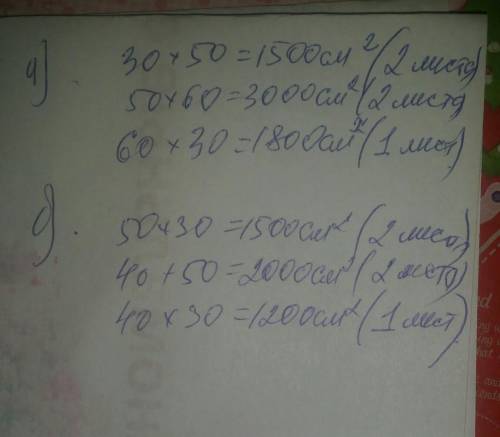 а). 30 × 50 = 1500 см² (2 листа)
50 × 60 = 3000 см² (2 листа)
60 × 30 = 1800 см² (1 лист)
б). 50 × 30 = 1500 см² (2 листа)
40 + 50 = 2000 см² (2 листа)
40 × 30 = 1200 см² (1 лист).